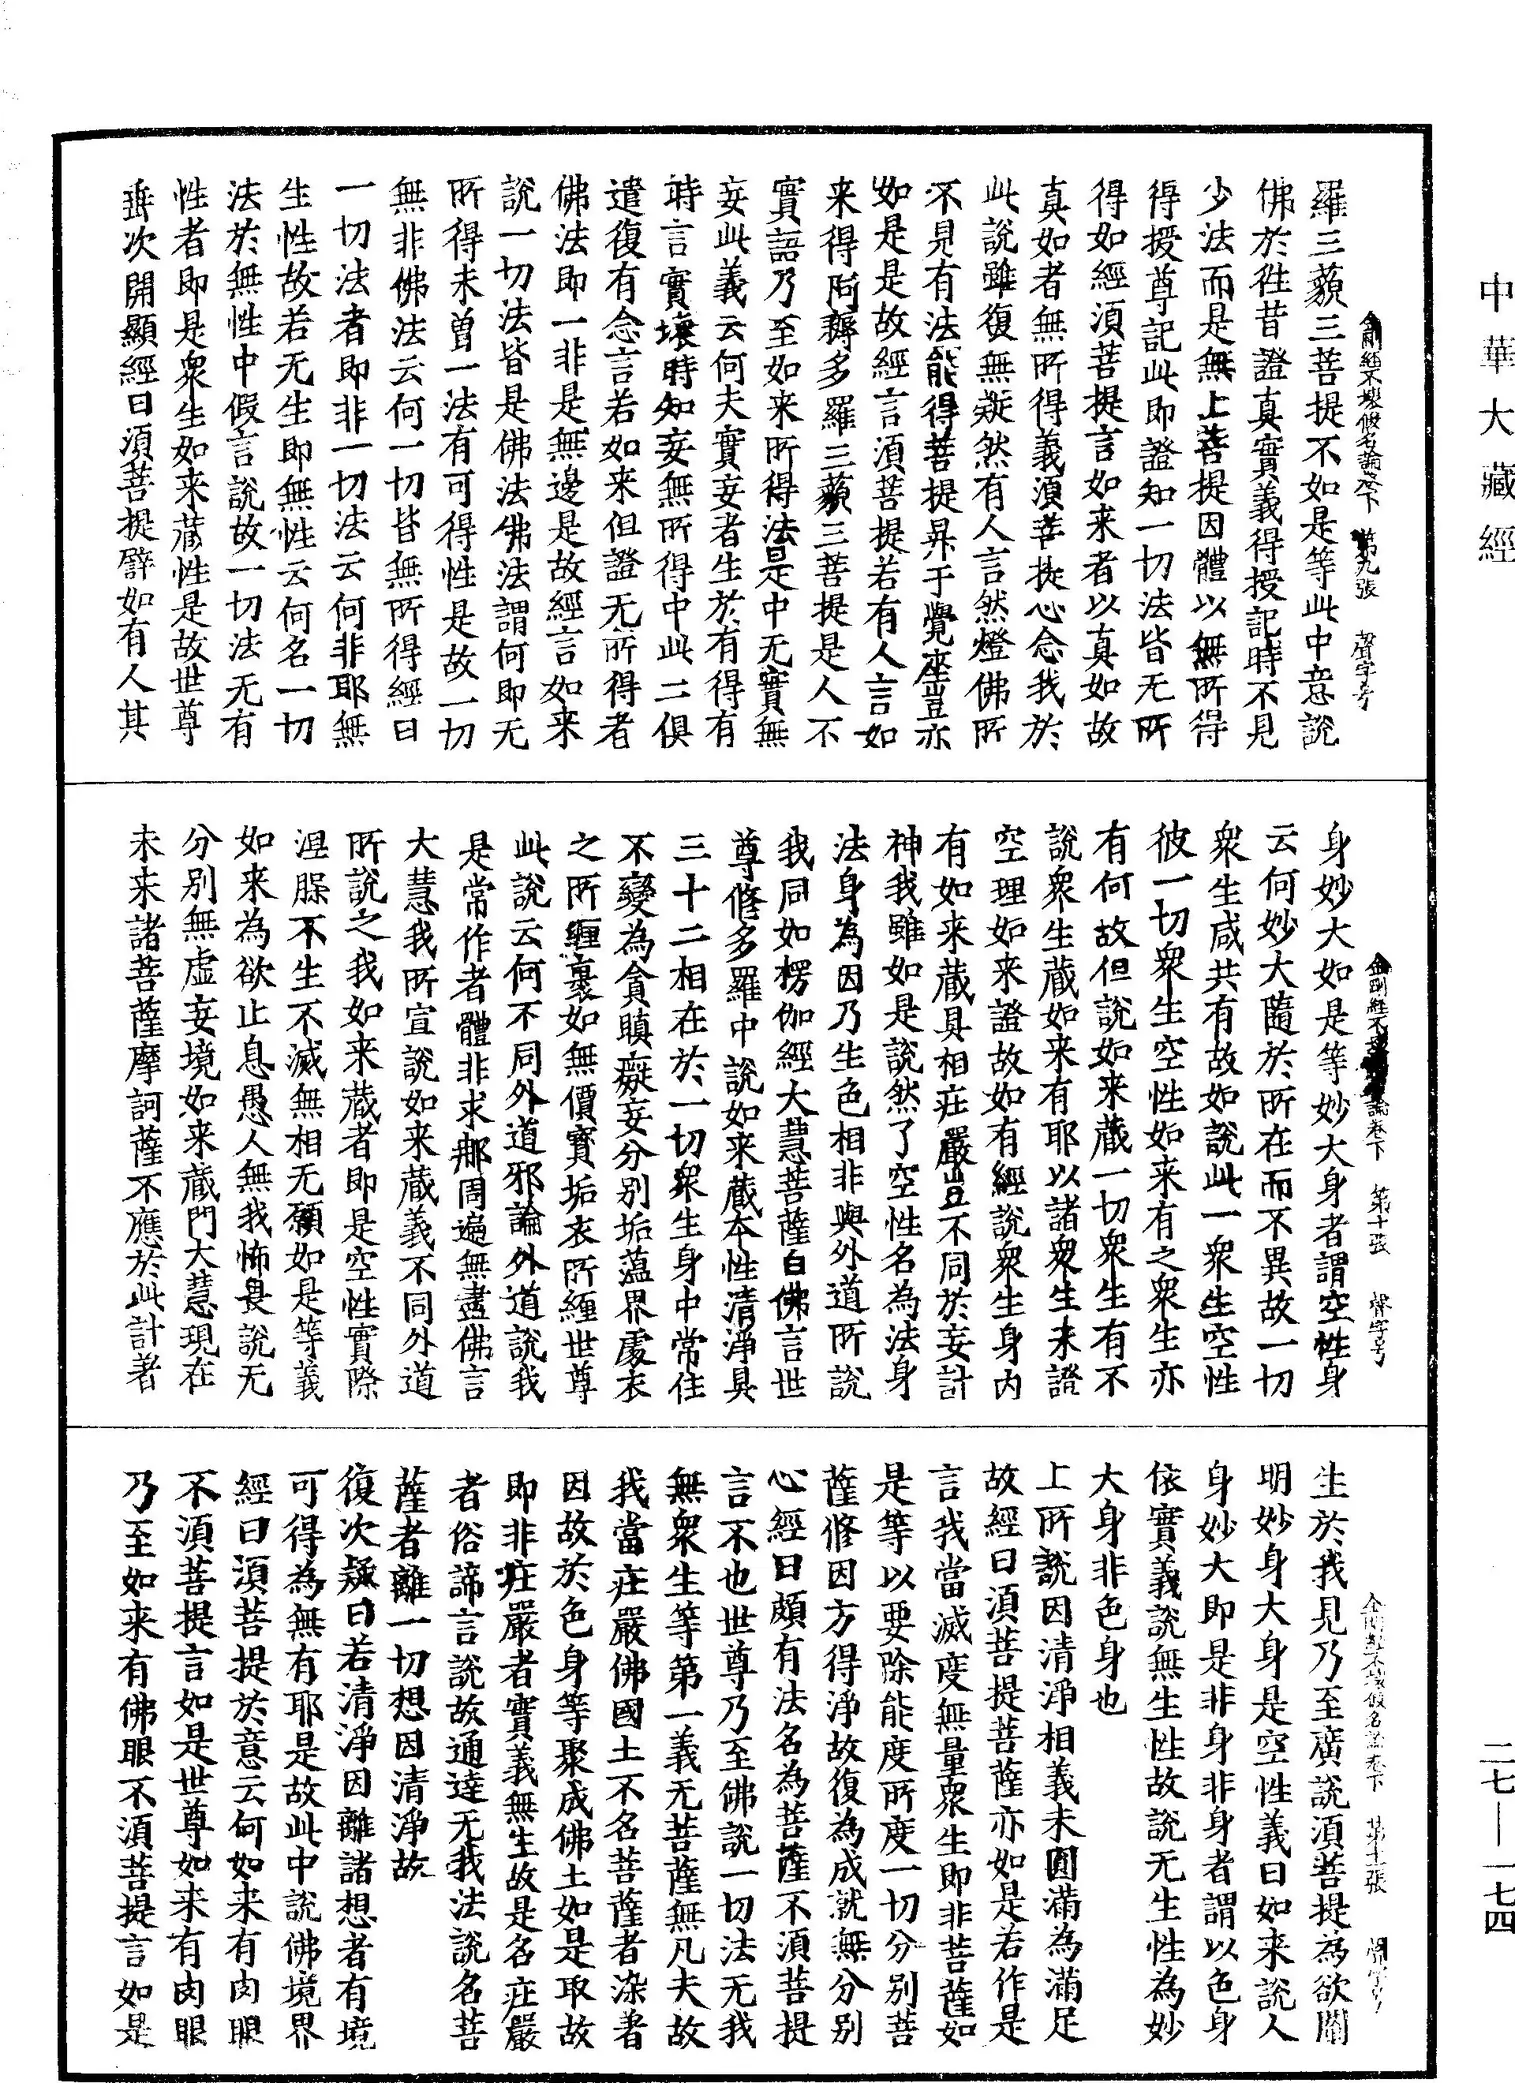 中華大藏經
二七—一七四
金剛經不壞假名論卷下　第九張　聲字号
羅三藐三菩提不如是等此中意說
佛於往昔證真實義得授記時不見
少法而是無上菩提因體以無所得
得授尊記此即證知一切法皆无所
得如經湏菩提言如来者以真如故
真如者無所得義湏菩提心念我於
此說雖復無疑然有人言然燈佛所
不見有法能得菩提昇于覺座豈亦
如是是故經言湏菩提若有人言如
来得阿耨多羅三藐三菩提是人不
實語乃至如来所得法是中无實無
妄此義云何夫實妄者生於有得有
時言實壞時知妄無所得中此二俱
遣復有念言若如来但證无所得者
佛法即一非是無邊是故經言如来
說一切法皆是佛法佛法謂何即无
所得未曽一法有可得性是故一切
無非佛法云何一切皆無所得經曰
一切法者即非一切法云何非耶無
生性故若无生即無性云何名一切
法於無性中假言說故一切法无有
性者即是衆生如来藏性是故世尊
垂次開顯經曰湏菩提譬如有人其
金剛經不壞假名論卷下　第十張　聲字号
身妙大如是等妙大身者謂空性身
云何妙大隨於所在而不異故一切
衆生咸共有故如說此一衆生空性
彼一切衆生空性如来有之衆生亦
有何故但說如来藏一切衆生有不
說衆生藏如来有耶以諸衆生未證
空理如来證故如有經說衆生身内
有如来藏具相莊嚴豈不同於妄計
神我雖如是說然了空性名為法身
法身為因乃生色相非與外道所說
我同如楞伽經大慧菩薩白佛言世
尊修多羅中說如来藏本性清淨具
三十二相在於一切衆生身中常住
不變為貪瞋癡妄分別垢薀界處衣
之所纏裹如無價寶垢衣所纏世尊
此說云何不同外道邪論外道說我
是常作者體非求那周遍無盡佛言
大慧我所宣說如来藏義不同外道
所說之我如来藏者即是空性實際
涅槃不生不滅無相无願如是等義
如来為欲止息愚人無我怖畏說无
分別無虚妄境如来藏門大慧現在
未来諸菩薩摩訶薩不應於此計著
金剛經不壞假名論卷下　第十一張　聲字号
生於我見乃至廣說湏菩提為欲闡
明妙身大身是空性義曰如来說人
身妙大即是非身非身者謂以色身
依實義說無生性故說无生性為妙
大身非色身也
上所說因清淨相義未圓滿為滿足
故經曰湏菩提菩薩亦如是若作是
言我當滅度無量衆生即非菩薩如
是等以要除能度所度一切分別菩
薩修因方得淨故復為成就無分別
心經曰頗有法名為菩薩不湏菩提
言不也世尊乃至佛說一切法无我
無衆生等第一義无菩薩無凡夫故
我當莊嚴佛國土不名菩薩者染著
因故於色身等聚成佛土如是取故
即非莊嚴者實義無生故是名莊嚴
者俗諦言說故通達无我法說名菩
薩者離一切想因清淨故
復次疑曰若清淨因離諸想者有境
可得為無有耶是故此中說佛境界
經曰湏菩提於意云何如来有肉眼
不湏菩提言如是世尊如来有肉眼
乃至如来有佛眼不湏菩提言如是